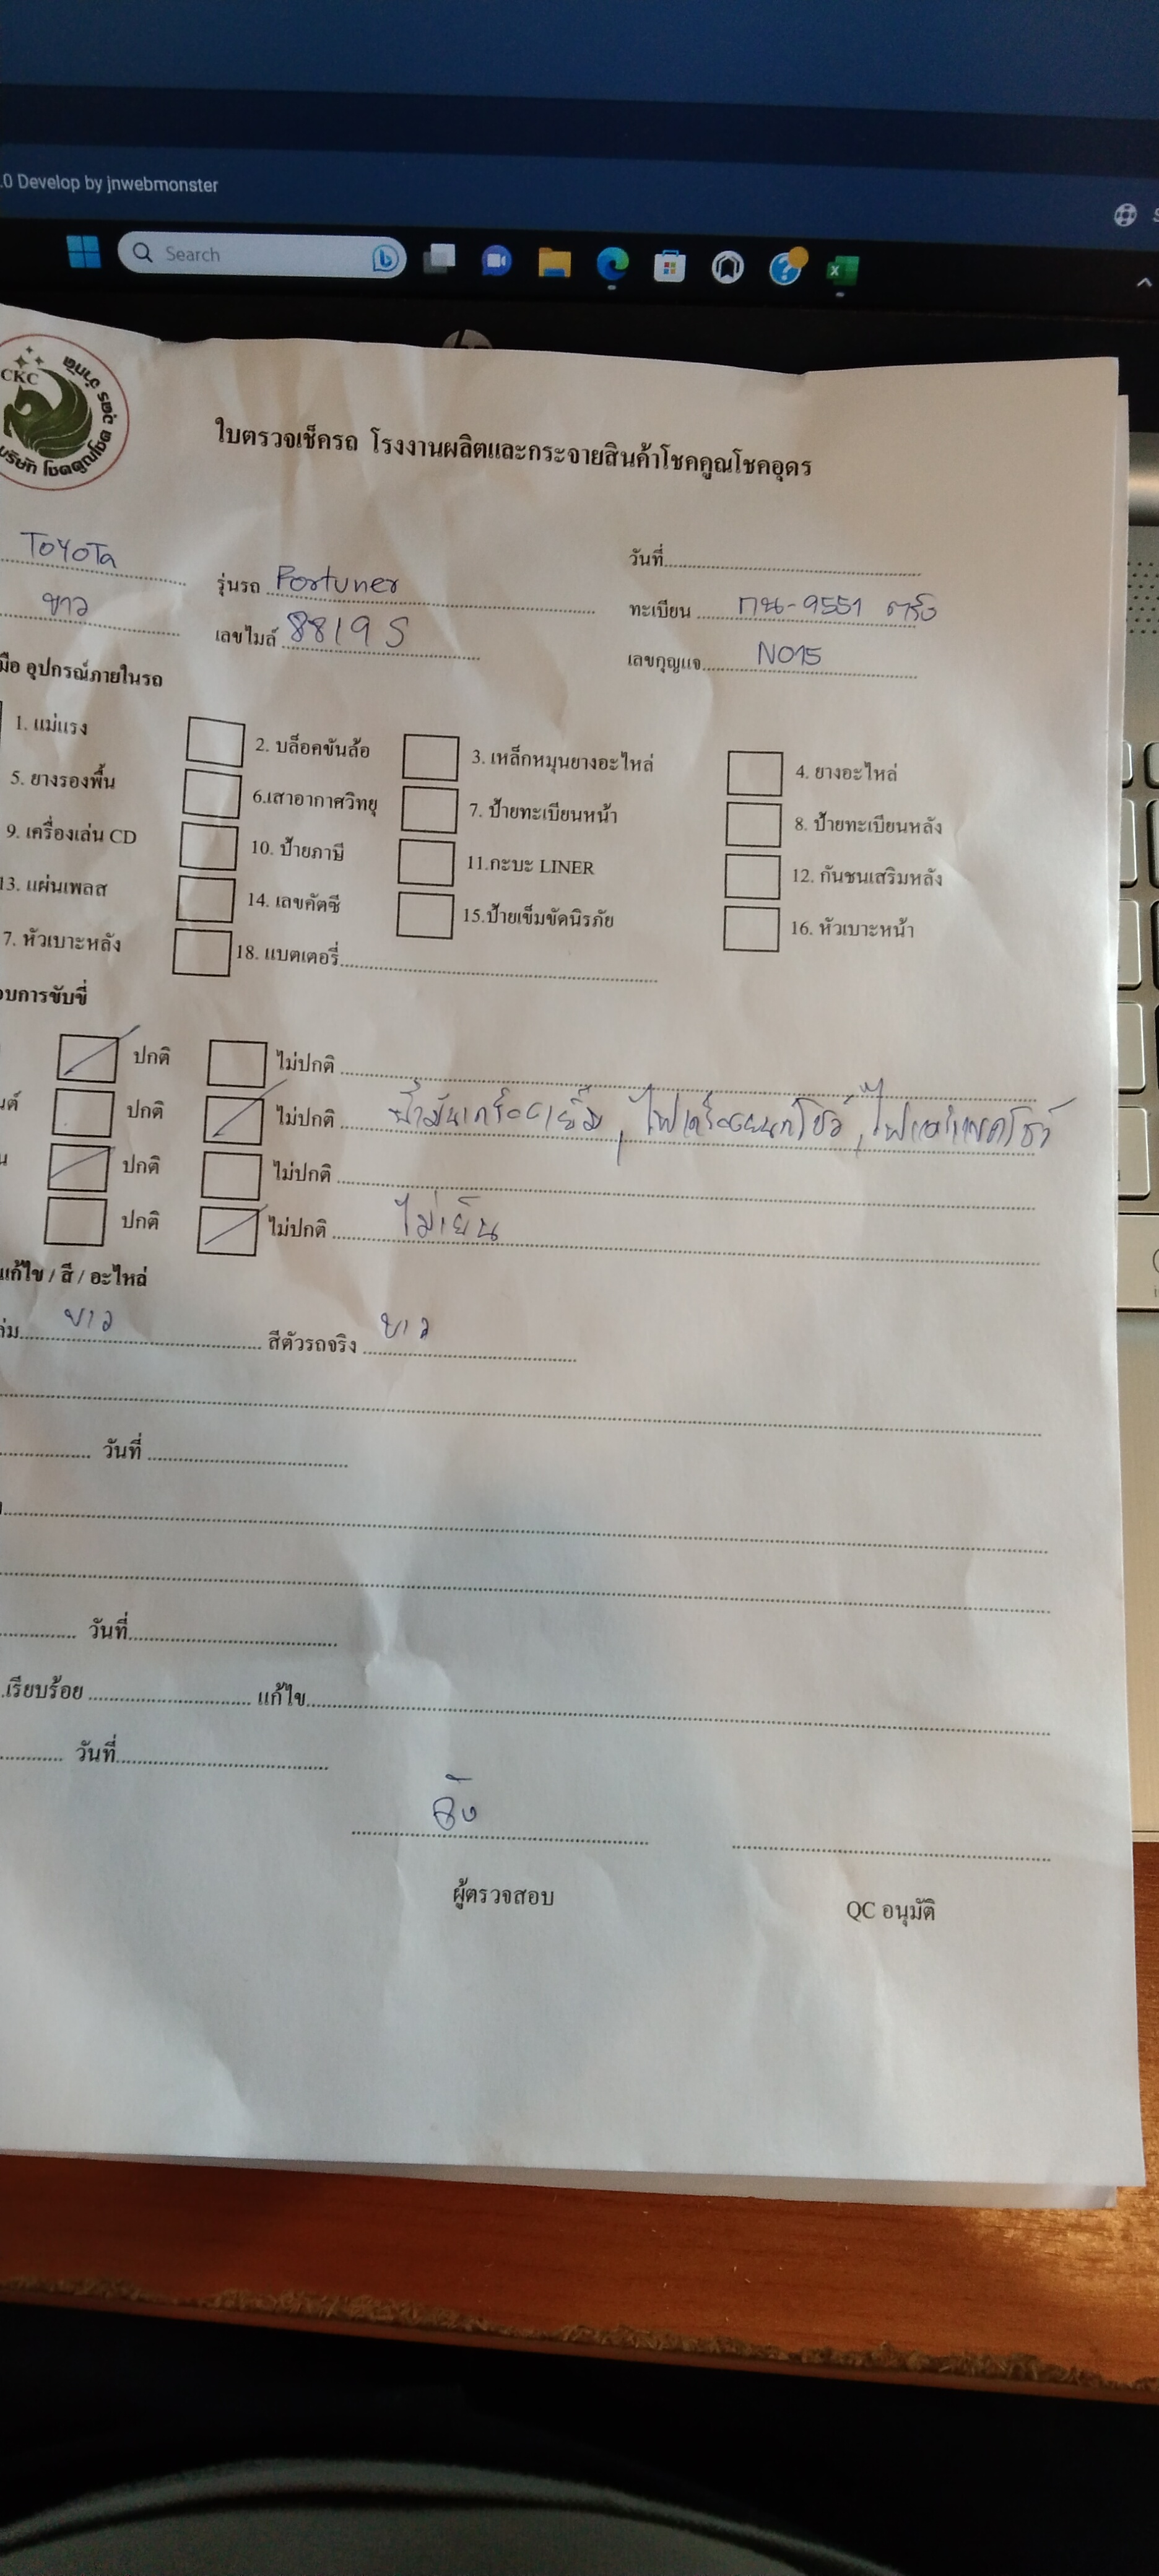 .0 Develop by jnwebmonster
Search
CKC
บริษัท โชคคูณโชค อุดร จำกัด
ใบตรวจเช็ครถ โรงงานผลิตและกระจายสินค้าโชคคูณโชคอุดร
วันที่
TOYOTA รุ่นรถ Fortuner ทะเบียน กน-9551 ตรัง
ขาว เลขไมล์ 88195 เลขกุญแจ NO15
มือ อุปกรณ์ภายในรถ
1. แม่แรง 2. บล็อคขันล้อ 3. เหล็กหมุนยางอะไหล่ 4. ยางอะไหล่
5. ยางรองพื้น 6.เสาอากาศวิทยุ 7. ป้ายทะเบียนหน้า 8. ป้ายทะเบียนหลัง
9. เครื่องเล่น CD 10. ป้ายภาษี 11.กะบะ LINER 12. กันชนเสริมหลัง
13. แผ่นเพลส 14. เลขคัตซี 15.ป้ายเข็มขัดนิรภัย 16. หัวเบาะหน้า
7. หัวเบาะหลัง 18. แบตเตอรี่
อบการขับขี่
ปกติ ไม่ปกติ
นต์ ปกติ ไม่ปกติ น้ำมันเครื่องเยิ้ม, ไฟเครื่องยนต์โชว์,
น ปกติ ไม่ปกติ
ปกติ ไม่ปกติ ไม่เย็น
แก้ไข / สี / อะไหล่
ล่ม ขาว สีตัวรถจริง ขาว
วันที่
วันที่
.เรียบร้อย แก้ไข
วันที่
ผู้ตรวจสอบ QC อนุมัติ